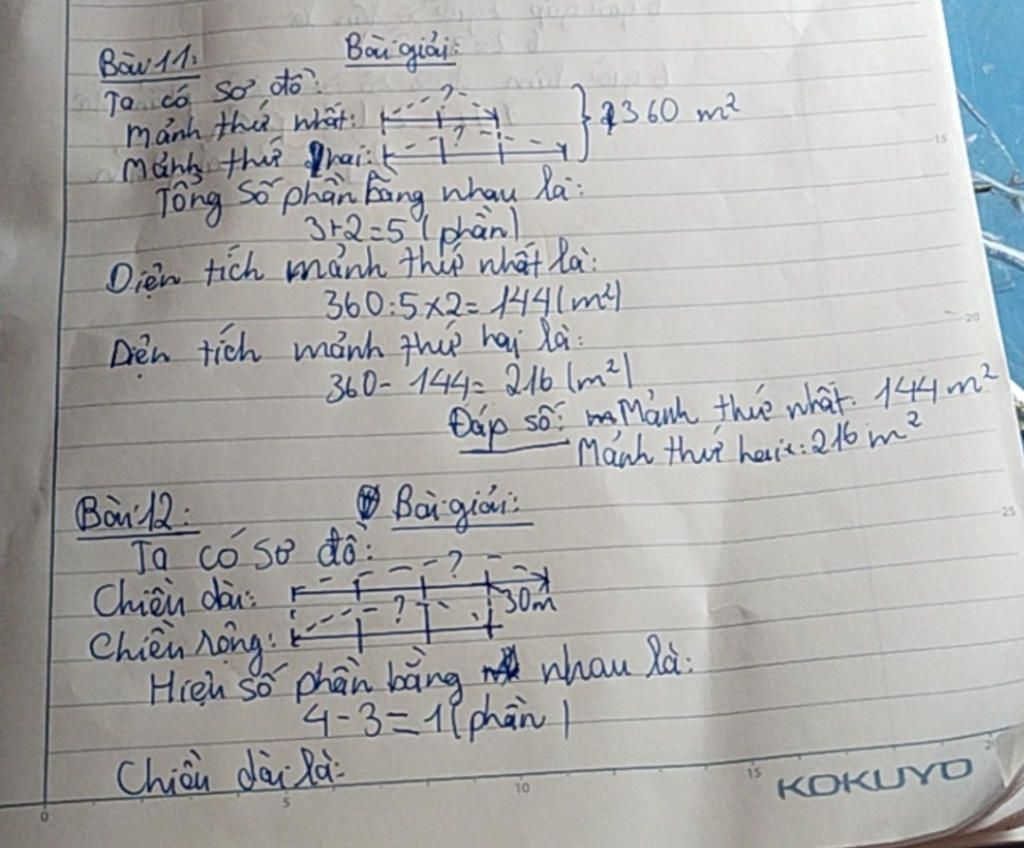 Bài 11: Bài giải:
Ta có sơ đồ:
Mảnh thứ nhất: ? 360 m²
Mảnh thứ hai: ?
Tổng số phần bằng nhau là:
3+2=5 (phần)
Diện tích mảnh thứ nhất là:
360:5×2=144(m²)
Diện tích mảnh thứ hai là:
360-144=216(m²)
Đáp số: Mảnh thứ nhất: 144 m²
Mảnh thứ hai: 216 m²
Bài 12: Bài giải:
Ta có sơ đồ:
Chiều dài: ?
30m
Chiều rộng: ?
Hiệu số phần bằng nhau là:
4-3=1(phần)
Chiều dài là:
0 5 10 15 KOKUYO
15
20
25